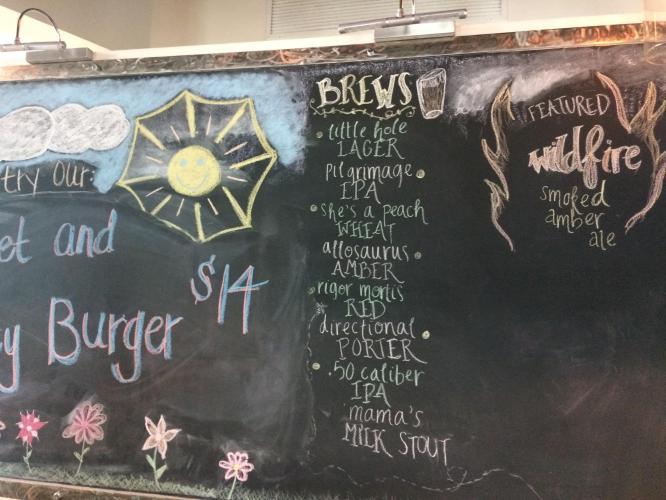 try our:
and
$14
Burger
BREWS
little hole
LAGER
pilgrimage
IPA
she's a peach
WHEAT
allosaurus
AMBER
rigor mortis
RED
directional
PORTER
.50 caliber
IPA
mama's
MILK STOUT
FEATURED
wildfire
smoked
amber
ale